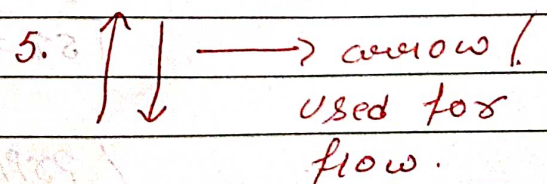 5. ↑ ↓ → arrow /
used for
flow.